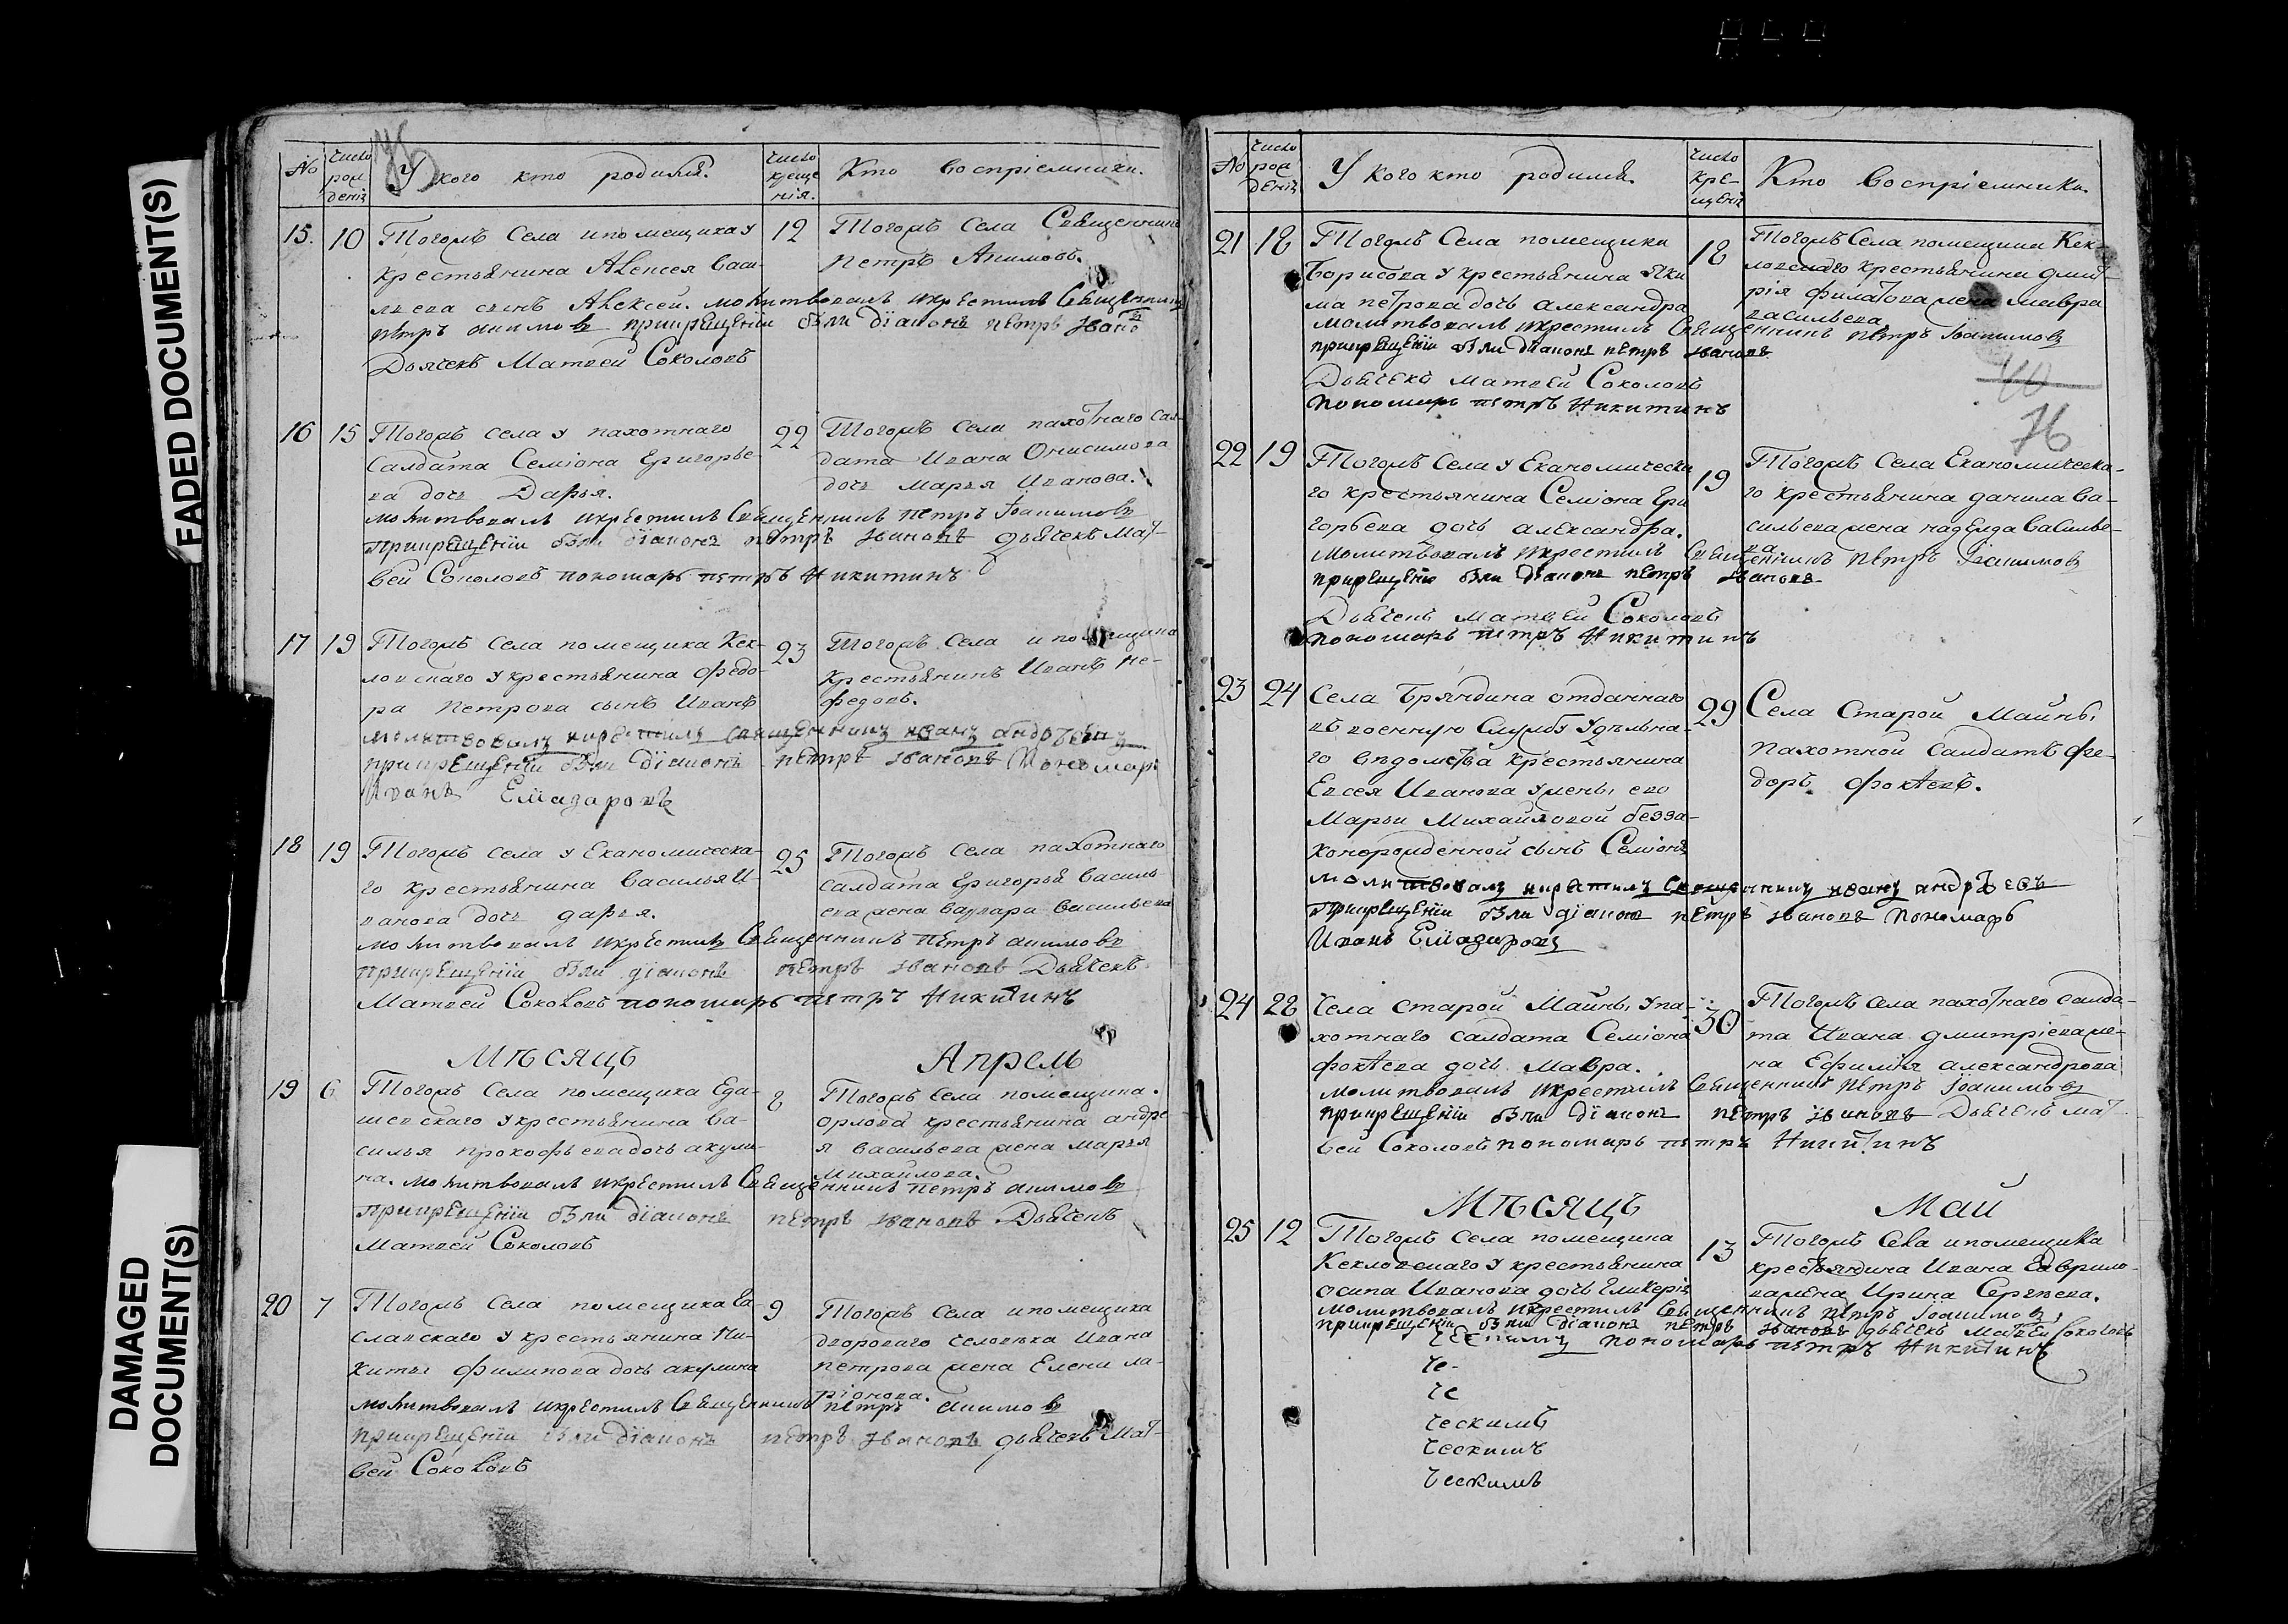 FADED DOCUMENT(S)
DAMAGED
DOCUMENT(S)
No
число
рож
денія
У кого кто родился.
число
креще
нія.
Кто воспріемники.
15.
10
Тогожъ Села и помещика у
крестьянина Алексея Васи-
льева сынъ Алексей. молитвовалъ и крестилъ Священникъ
петръ акимовъ при крещеніи были діаконъ петръ Ивановъ
Дьячекъ Матвей Соколовъ
12
Тогожъ Села Священникъ
петръ Акимовъ.
16
15
Тогожъ села у пахотнаго
Салдата Семіона Григорье-
ва дочь Дарья.
молитвовалъ и крестилъ Священникъ петръ Іоакимовъ
при крещеніи были діаконъ петръ Ивановъ дьячекъ Мат-
вей Соколовъ пономарь петръ Никитинъ
22
Тогожъ Села пахотнаго сал-
дата Ивана Онисимова
дочь Марья Иванова.
17
19
Тогожъ Села помещика Кек-
ловскаго у крестьянина Федо-
ра Петрова сынъ Иванъ
молитвовалъ и крестилъ священникъ иванъ андрѣевъ
при крещеніи были діаконъ петръ Ивановъ Пономарь
Иванъ
23
Тогожъ Села и помещика
крестьянинъ Иванъ Не-
федовъ.
18
19
Тогожъ села у Економическа-
го крестьянина Василья И-
ванова дочь дарья.
молитвовалъ и крестилъ Священникъ петръ акимовъ
при крещеніи были діаконъ петръ Ивановъ Дьячекъ
Матвей Соколовъ пономарь петръ Никитинъ
25
Тогожъ Села пахотнаго
салдата Григорья Василь-
ева жена Варвара Васильева
Мѣсяцъ Апрель
19
6
Тогожъ Села помещика
у крестьянина Ва-
силья прокофьева дочь акули-
на. молитвовалъ и крестилъ Священникъ петръ акимовъ
при крещеніи были діаконъ петръ Ивановъ Дьячекъ
Матвей Соколовъ
8
Тогожъ села помещика
орлова крестьянина андре-
я Васильева жена Марья
Михаилова.
20
7
Тогожъ Села помещика
у крестьянина Ни-
киты Филипова дочь акулина
молитвовалъ и крестилъ Священникъ петръ акимовъ
при крещеніи были діаконъ петръ Ивановъ дьячекъ Мат-
вей Соколовъ
9
Тогожъ Села и помещика
двороваго человѣка Ивана
петрова жена Елена ла-
ріонова.
No
число
рож
деніѧ
У кого кто родился.
число
кре-
щенія
Кто воспріемники.
21
18
Тогожъ Села помещика
Борисова у крестьянина Яки
ма петрова дочь александра
молитвовалъ и крестилъ Священникъ петръ Іоакимовъ
при крещеніи были діаконъ петръ Ивановъ
Дьячекъ Матвей Соколовъ
пономарь петръ Никитинъ
18
Тогожъ Села помещика Кек-
ловскаго крестьянина дмит-
рія филатова жена Мавра
васильева
40
76
22
19
Тогожъ Села у Економическа
го крестьянина Семіона Гри
горьева дочь александра.
молитвовалъ и крестилъ Священникъ петръ Іоакимовъ
при крещеніи были діаконъ петръ Ивановъ
Дьячекъ Матвей Соколовъ
пономарь петръ Никитинъ
19
Тогожъ Села Економическа-
го крестьянина данила Ва-
сильева жена надежда Василье-
ва
23
24
Села Бряндина отданнаго
въ военную Службу Удѣльна-
го ведомства крестьянина
Евсея Иванова у жены его
Марьи Михайловой безза-
конорожденной сынъ Семіонъ
молитвовалъ и крестилъ Священникъ иванъ андрѣевъ
при крещеніи были діаконъ петръ Ивановъ пономарь
Иванъ
29
Села Старой Майны
пахотной салдатъ фе-
доръ фоктевъ.
24
28
Села Старой Майны у па-
хотнаго салдата Семіона
фоктева дочь Мавра.
молитвовалъ и крестилъ Священникъ петръ Іоакимовъ
при крещеніи были діаконъ петръ Ивановъ Дьячекъ Мат-
вей Соколовъ пономарь петръ Никитинъ
30
Тогожъ Села пахотнаго салда-
та Ивана дмитріева же-
на Ефимія александрова
Мѣсяцъ Май
25
12
Тогожъ Села помещика
Кекловскаго у крестьянина
осипа Иванова дочь Гликерія
молитвовалъ и крестилъ Священникъ петръ Іоакимовъ
при крещеніи были діаконъ петръ Ивановъ дьячекъ Матвей Соколовъ
пономарь петръ Никитинъ
13
Тогожъ Села и помещика
крестьянина Ивана Гаврило-
ва жена Ирина Сергѣева.
че-
че
ческимъ
ческимъ
ческимъ